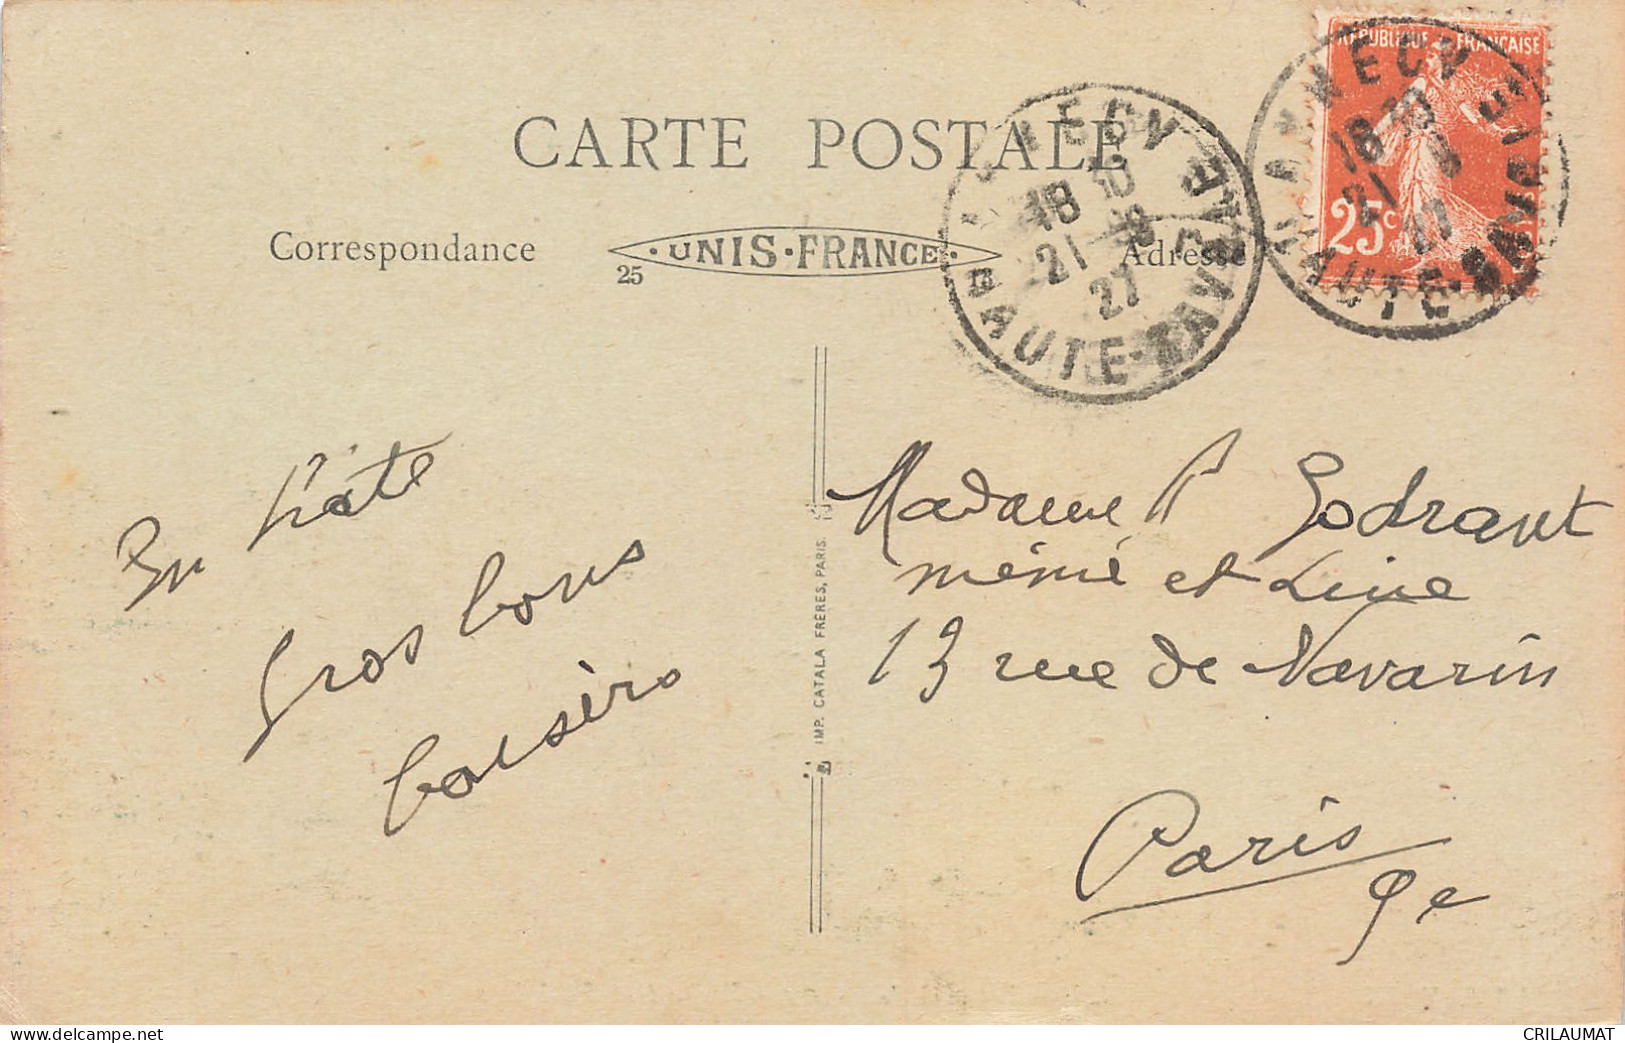 CARTE POSTALE
Correspondance
25
·UNIS·FRANCE·
Adresse
ANNECY
18 30
21 - 8
27
HAUTE-SAVOIE
REPUBLIQUE FRANÇAISE
25c
ANNECY
18 30
21 8
27
HAUTE-SAVOIE
En hâte
Gros bons
baisers
IMP. CATALA FRERES, PARIS.
Madame P Godrant
mémé et Line
13 rue de Navarin
Paris
9e
www.delcampe.net
CRILAUMAT